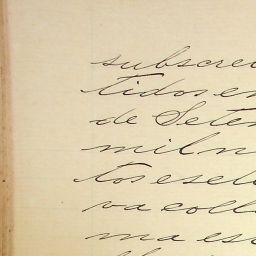 subscrev
tidos em
de Setem
mil n
tos e sete
va coll
ma es